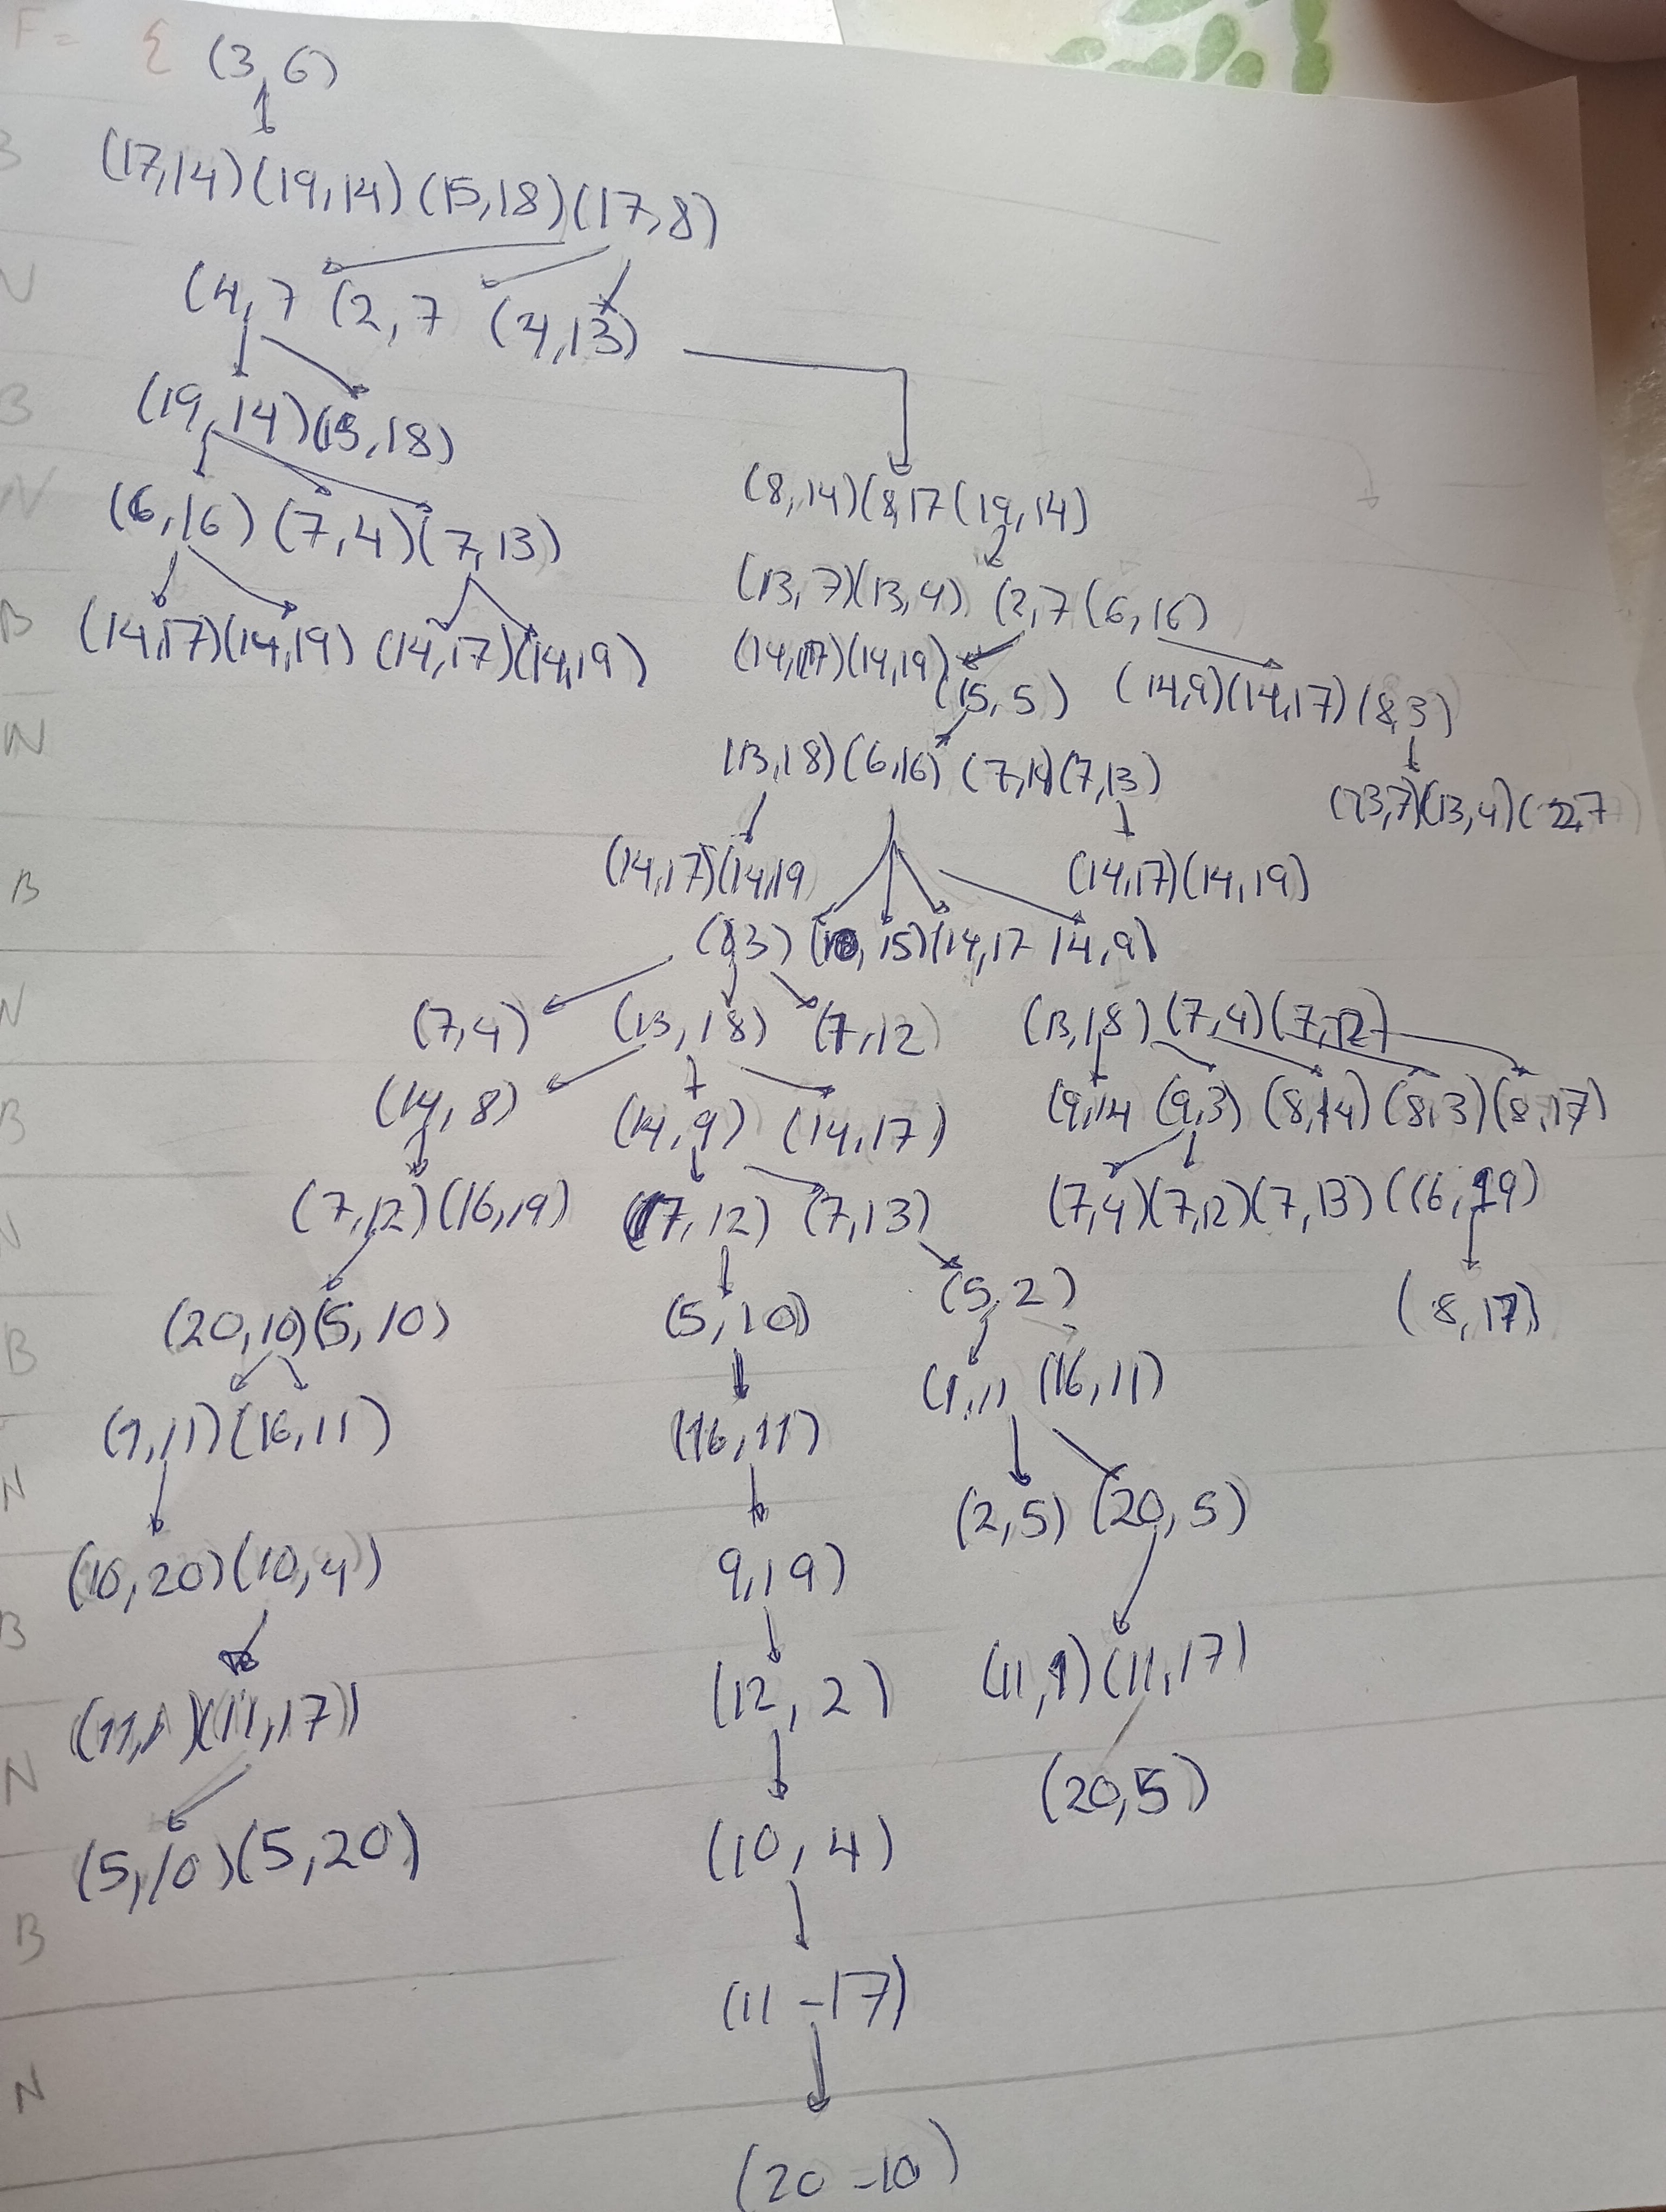 F = { (3,6)
B
(17,14) (19,14) (15,18) (17,8)
N
(4,7 (2,7 (4,13)
B
(19,14) (15,18)
N
(8,14) (8,17 (19,14)
(6,16) (7,4) (7,13)
(13,7) (13,4) (2,7 (6,16)
B
(14,17) (14,19) (14,17) (14,19)
(14,17) (14,19)
(15,5) (14,9) (14,17) (8,3)
N
(13,18) (6,16) (7,13)
(13,7) (13,4) ( 2,7
B
(14,17) (14,19 (14,17) (14,19)
(8,3) 15) (14,17 14,9)
N
(7,4) (13,18) (7,12) (13,18) (7,4) (7,12)
B
(14,8) (14,9) (14,17) (9,14 (9,3) (8,14) (8,3) (8,17)
N
(7,12) (16,19) (7,12) (7,13) (7,4) (7,12) (7,13) (16,19)
B
(20,10) (5,10) (5,10) (5,2) (8,17)
N
(9,11) (16,11) (16,11) (9,11 (16,11)
B
(10,20) (10,4) 9,19) (2,5) (20,5)
N
(11,17) (12,2) (11,9) (11,17)
B
(5,10) (5,20) (10,4) (20,5)
N
(11-17)
(20-10)